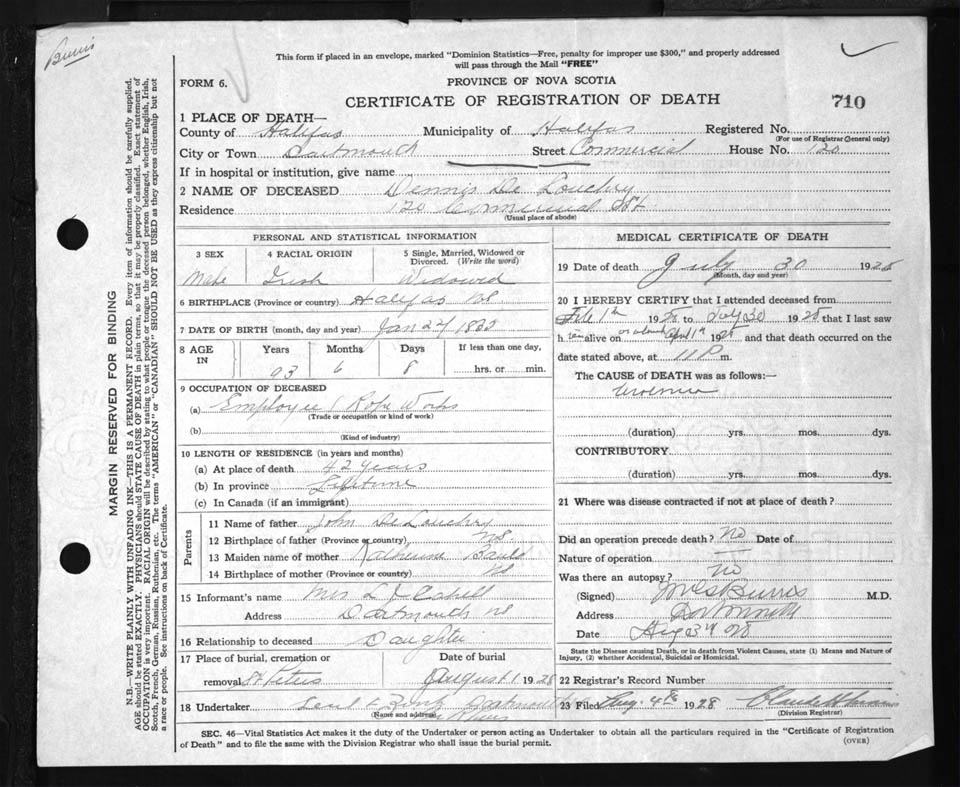 Burris
This form if placed in an envelope, marked "Dominion Statistics—Free, penalty for improper use $300," and properly addressed
will pass through the Mail "FREE"
FORM 6.
PROVINCE OF NOVA SCOTIA
CERTIFICATE OF REGISTRATION OF DEATH
710
1 PLACE OF DEATH—
County of Halifax Municipality of Halifax Registered No.
(For use of Registrar General only)
City or Town Dartmouth Street Commercial House No. 120
If in hospital or institution, give name
2 NAME OF DECEASED Dennis De Louchry
Residence 120 Commercial St
(Usual place of abode)
PERSONAL AND STATISTICAL INFORMATION
3 SEX 4 RACIAL ORIGIN 5 Single, Married, Widowed or
Divorced. (Write the word)
Male Irish Widowed
6 BIRTHPLACE (Province or country) Halifax NS
7 DATE OF BIRTH (month, day and year) Jan 22
8 AGE IN Years Months Days If less than one day,
93 6 8 hrs. or min.
9 OCCUPATION OF DECEASED
(a) Employee Rope Works
(Trade or occupation or kind of work)
(b)
(Kind of industry)
10 LENGTH OF RESIDENCE (in years and months)
(a) At place of death 42 years
(b) In province Lifetime
(c) In Canada (if an immigrant)
Parents
11 Name of father John De Louchry
12 Birthplace of father (Province or country) NS
13 Maiden name of mother Katherine
14 Birthplace of mother (Province or country) NS
15 Informant's name Mrs L J Cahill
Address Dartmouth NS
16 Relationship to deceased Daughter
17 Place of burial, cremation or
removal St Peters
Date of burial
August 1 1928
18 Undertaker
(Name and address)
MEDICAL CERTIFICATE OF DEATH
19 Date of death July 30 1928
(Month, day and year)
20 I HEREBY CERTIFY that I attended deceased from
1928 to July 30 1928 that I last saw
h im alive on or about April 1st 1928 and that death occurred on the
date stated above, at 11 P m.
The CAUSE of DEATH was as follows:—
(duration) yrs. mos. dys.
CONTRIBUTORY
(duration) yrs. mos. dys.
21 Where was disease contracted if not at place of death?
Did an operation precede death? No Date of
Nature of operation
Was there an autopsy? No
(Signed) Burris M.D.
Address Dartmouth
Date Aug 3rd 28
State the Disease causing Death, or in death from Violent Causes, state (1) Means and Nature of
Injury, (2) whether Accidental, Suicidal or Homicidal.
22 Registrar's Record Number
23 Filed Aug. 4th 1928
(Division Registrar)
SEC. 46—Vital Statistics Act makes it the duty of the Undertaker or person acting as Undertaker to obtain all the particulars required in the "Certificate of Registration
of Death" and to file the same with the Division Registrar who shall issue the burial permit.
(OVER)
MARGIN RESERVED FOR BINDING
N.B.—WRITE PLAINLY WITH UNFADING INK—THIS IS A PERMANENT RECORD. Every item of information should be carefully supplied.
AGE should be stated EXACTLY. PHYSICIANS should STATE CAUSE OF DEATH in plain terms, so that it may be properly classified. Exact statement of
OCCUPATION is very important. RACIAL ORIGIN will be described by stating to what people or tongue the deceased person belonged, whether English, Irish,
Scotch, French, German, Russian, Ruthenian, etc. The terms "AMERICAN" or "CANADIAN" SHOULD NOT BE USED as they express citizenship but not
a race or people. See instructions on back of Certificate.